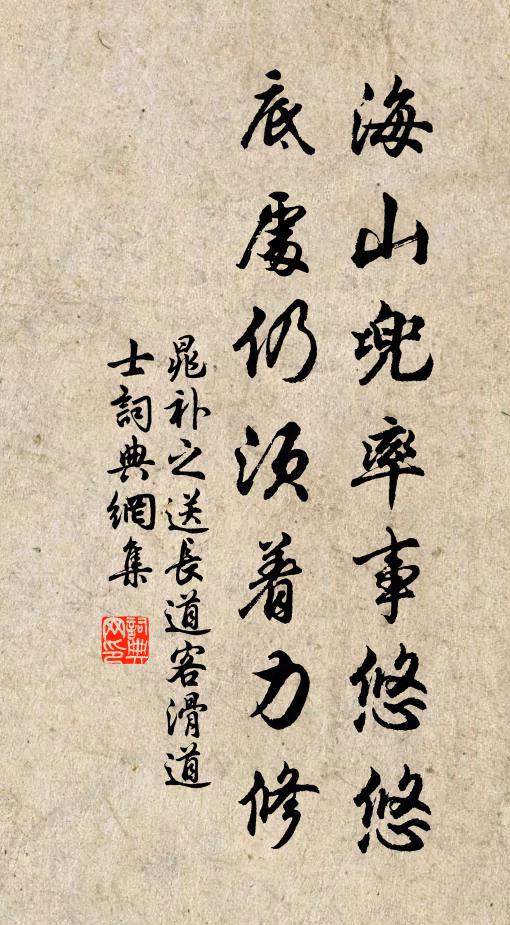 海山兜率事悠悠
底處仍須着力修
晁補之送長道客滑道
士詞典網集
詞典
網印